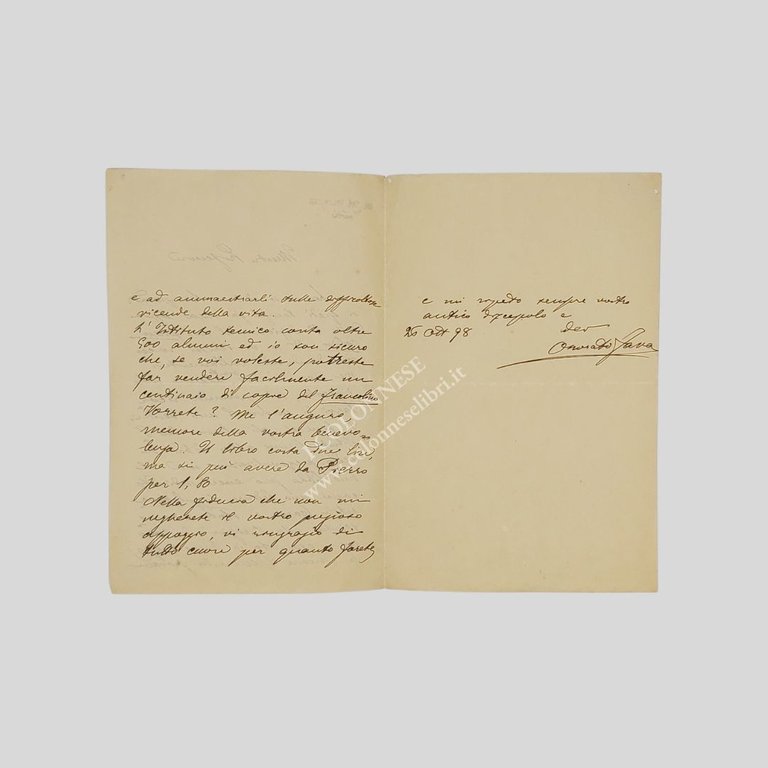 e ad ammaestrarli sulle difficoltose
vicende della vita.
L'Istituto tecnico conta oltre
500 alunni ed io son sicuro
che, se voi voleste, potreste
far vendere facilmente un
centinaio di copie del Francolino
Vorrete? Me l'auguro,
memore della vostra benevo=
lenza. Il libro costa due lire,
ma si può avere da Pierro
per 1,80
Nella fiducia che non mi
negherete il vostro prezioso
appoggio, vi ringrazio di
tutto cuore per quanto farete
e mi ripeto sempre vostro
antico discepolo e
dev
25 Ott 98
Onorato Fava
COLONNESE
www.colonneselibri.it